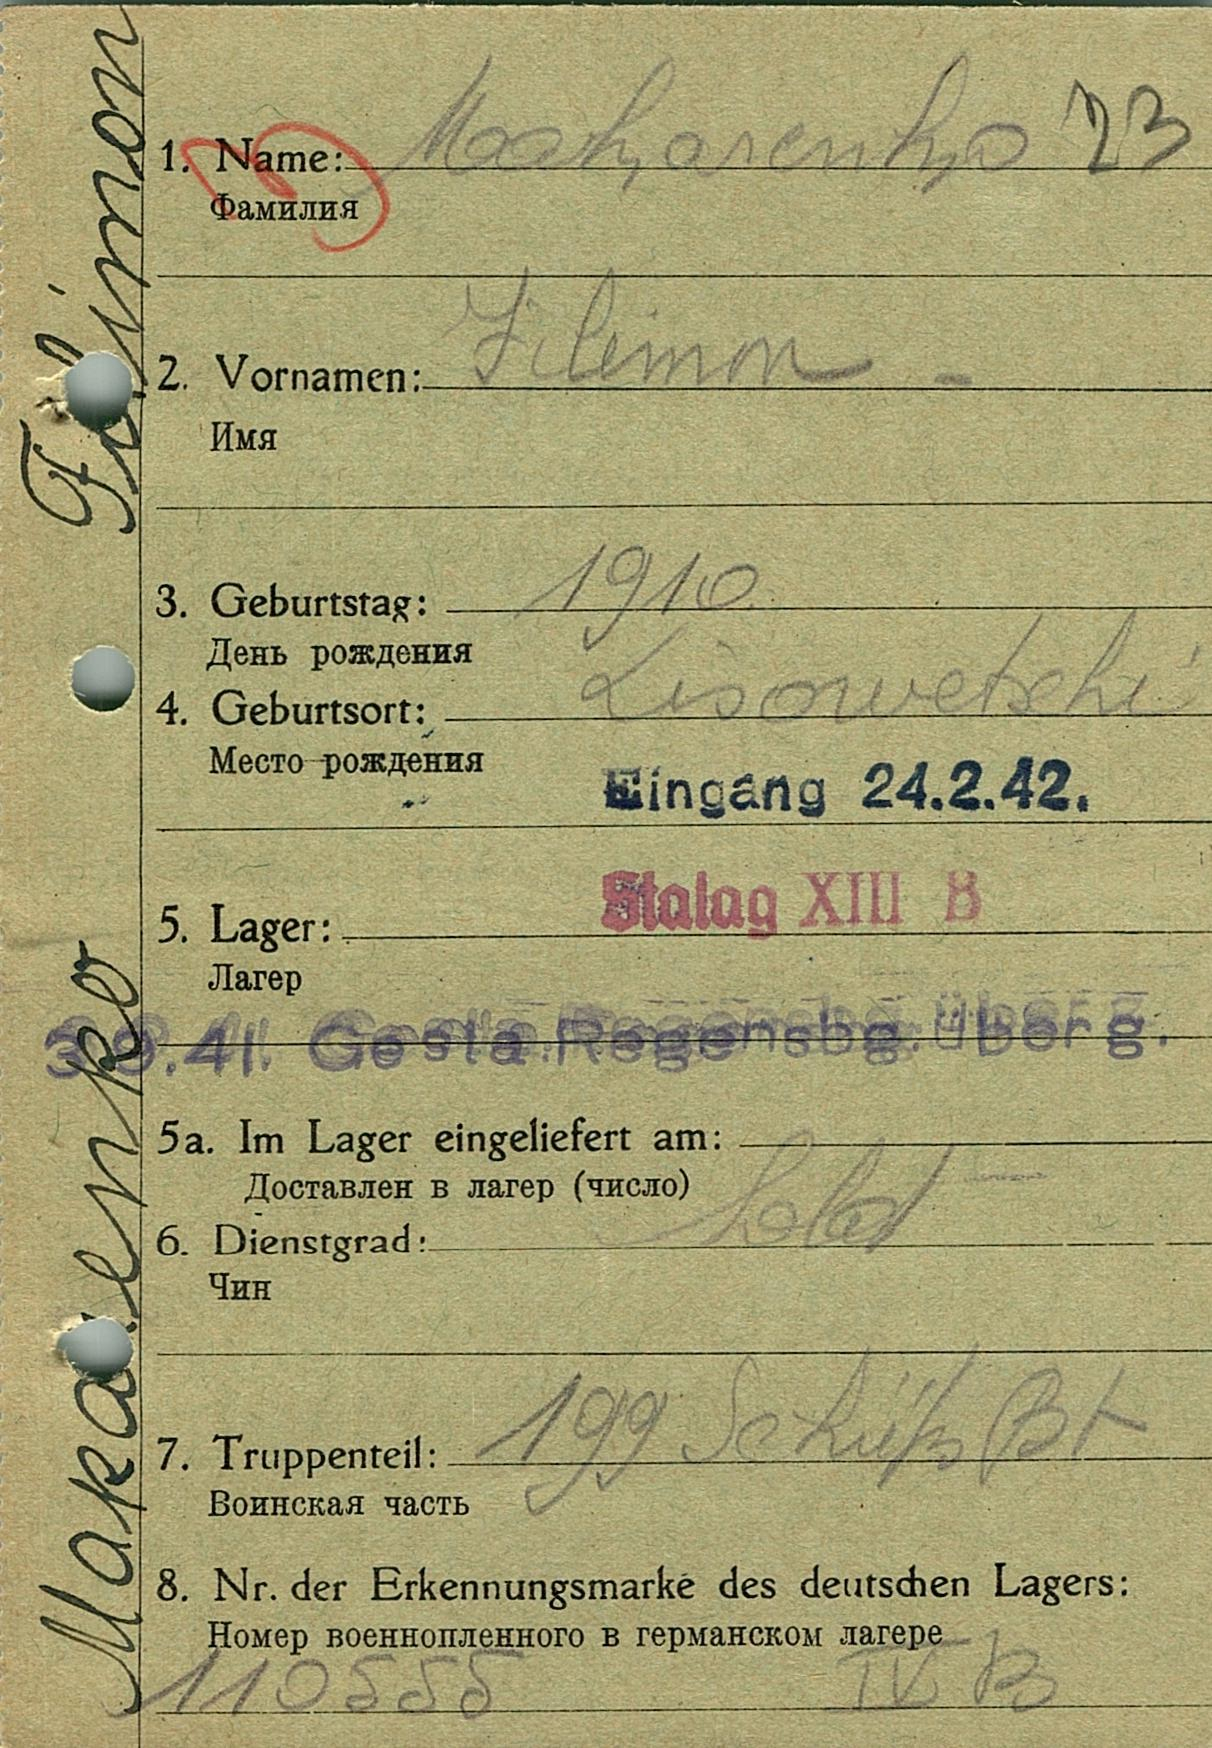 Makarenko Filimon
1. Name: Makarenko 23
Фамилия
2. Vornamen: Filimon -
Имя
3. Geburtstag: 1910.
День рождения
4. Geburtsort: Lisowetski
Место рождения
Eingang 24.2.42.
Stalag XIII B
5. Lager:
Лагер
3.9.41. Gesta Regensbg. überg.
5a. Im Lager eingeliefert am:
Доставлен в лагер (число)
6. Dienstgrad: Sold
Чин
7. Truppenteil: 199 Schütz Bt
Воинская часть
8. Nr. der Erkennungsmarke des deutschen Lagers:
Номер военнопленного в германском лагере
110555 IV B